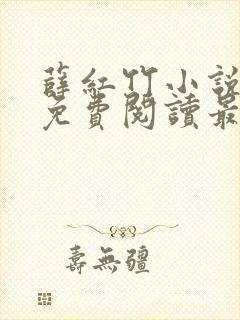 薛紅竹小說
免費閱讀最
壽無疆